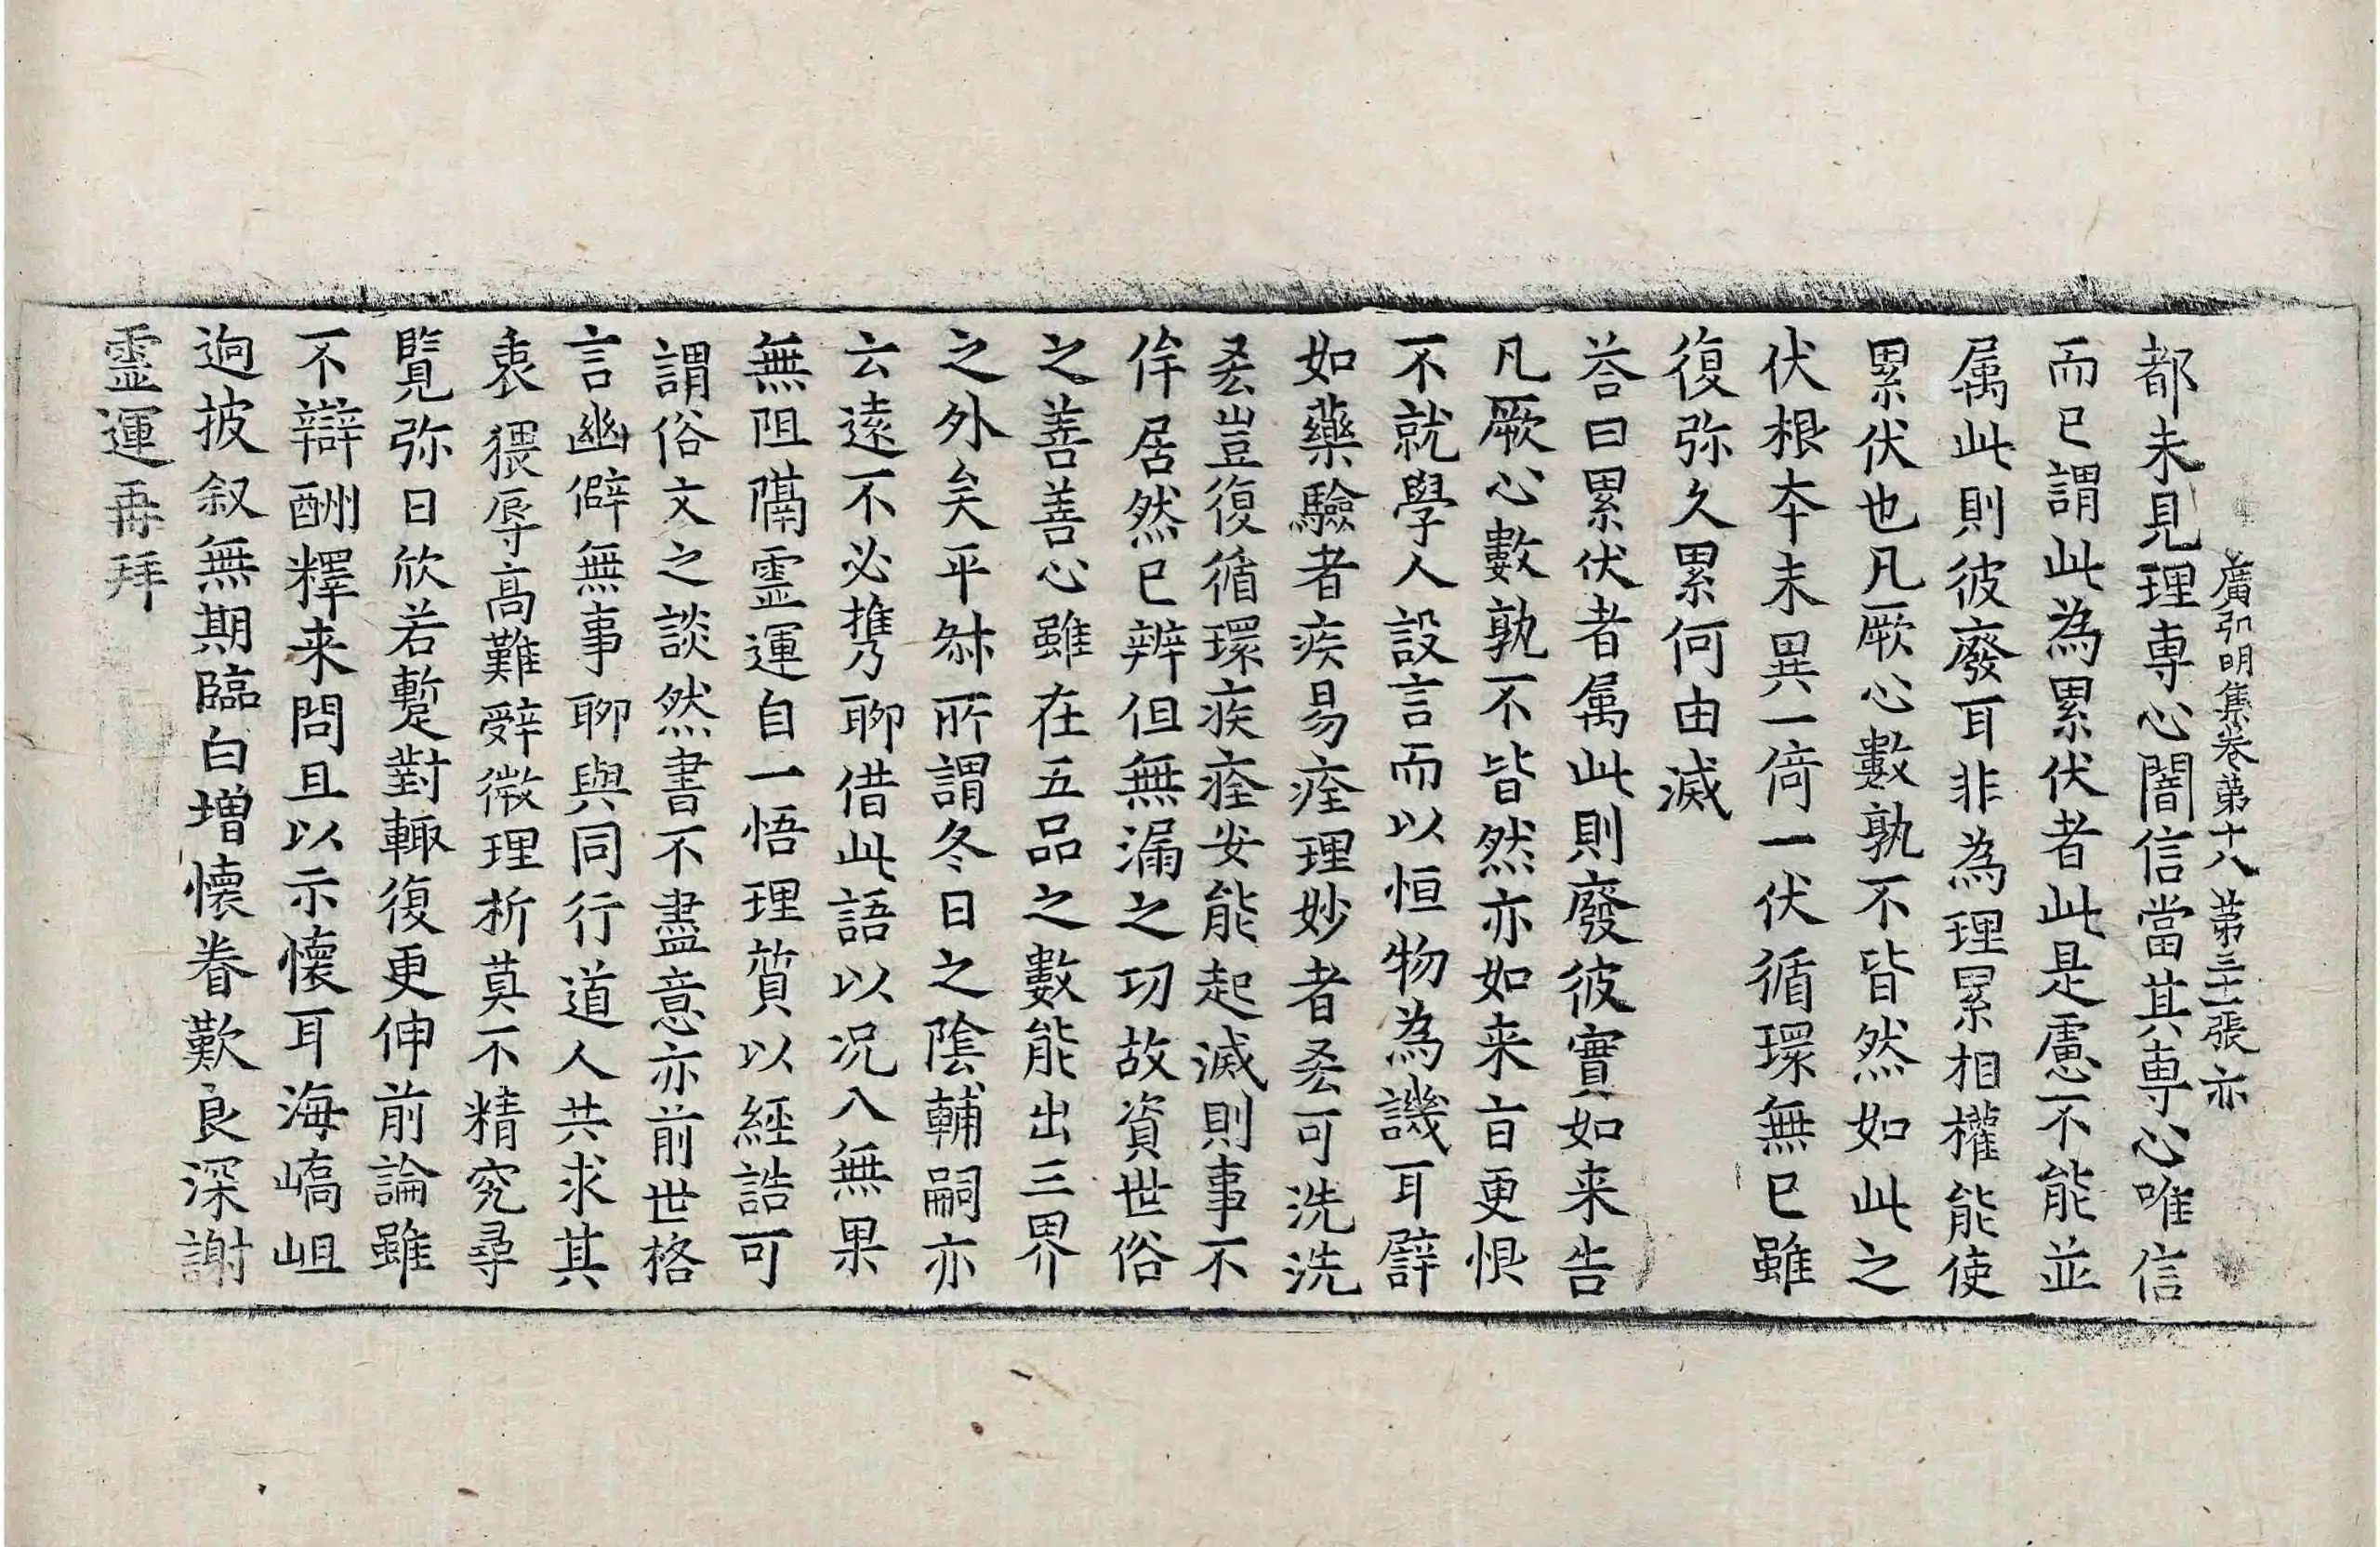 廣弘明集卷第十八 第三十一張 亦
都未見理專心闇信當其專心唯信
而已謂此為累伏者此是慮不能並
属此則彼廢耳非為理累相權能使
累伏也凡厥心數孰不皆然如此之
伏根本末異一倚一伏循環無已雖
復弥久累何由滅
荅曰累伏者属此則廢彼實如来告
凡厥心數孰不皆然亦如来旨更恨
不就學人設言而以恒物為譏耳譬
如藥驗者疾易痊理妙者吝可洗洗
吝豈復循環疾痊安能起滅則事不
侔居然已辨但無漏之功故資世俗
之善善心雖在五品之數能出三界
之外矣平叔所謂冬日之陰輔嗣亦
云遠不必携聊借此語以况入無果
無阻隔靈運自一悟理質以經誥可
謂俗文之談然書不盡意亦前世格
言幽僻無事聊與同行道人共求其
衷猥辱高難辤微理析莫不精究尋
覽弥日欣若蹔對輙復更伸前論雖
不辯酬釋来問且以示懷耳海嶠岨
逈披叙無期臨白増懷眷歎良深謝
靈運再拜